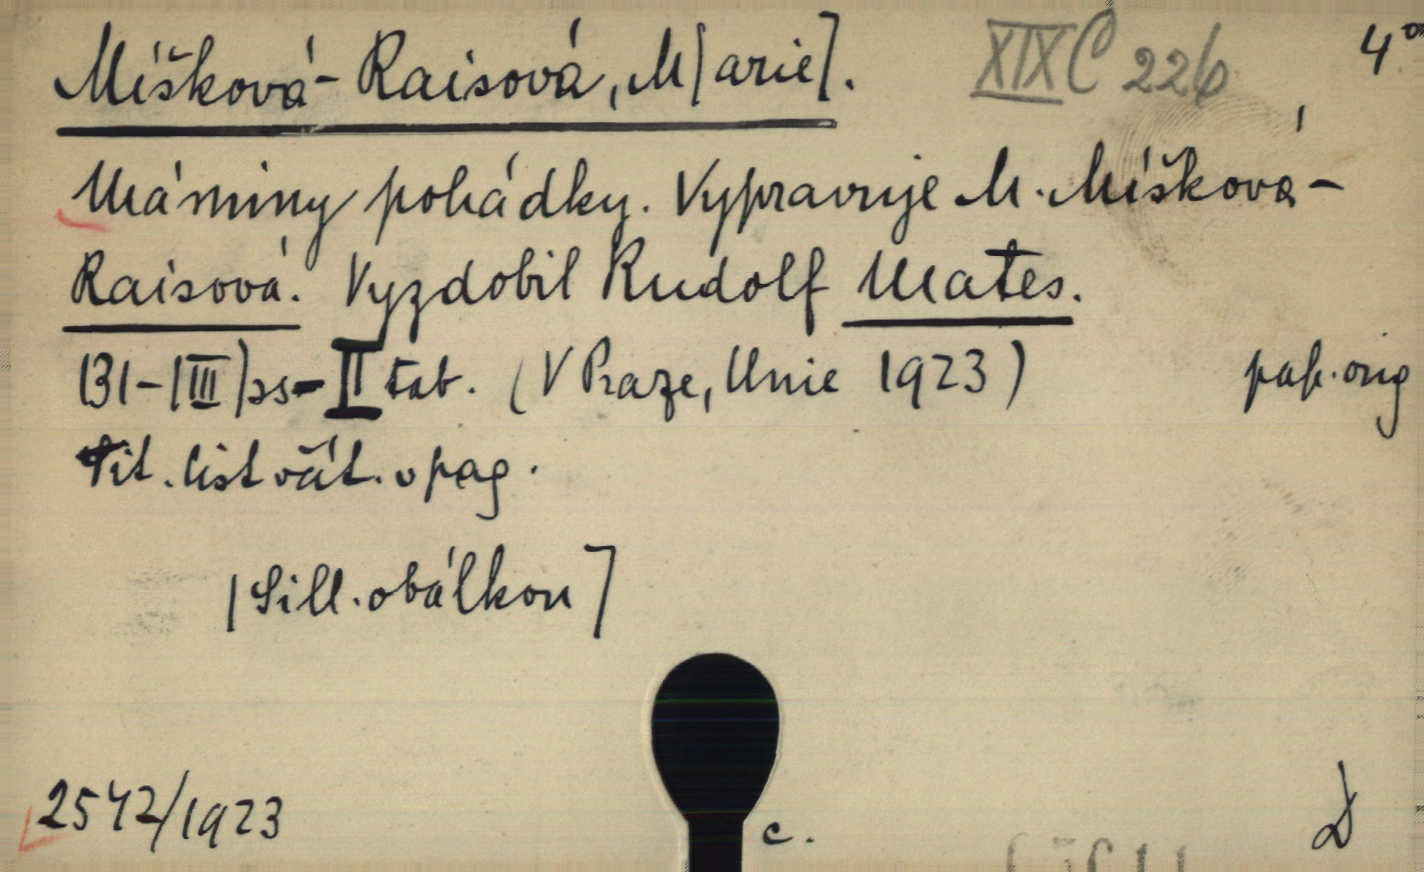 Míšková-Raisová, M[arie]. XIX C 226 4°
Máminy pohádky. Vypravuje M. Míšková-
Raisová. Vyzdobil Rudolf Mates.
131-|III| ss-II tab. (V Praze, Unie 1923) pap. orig
Tit. list obát. v pag.
[S ill. obálkou]
2542/1923
c.
D